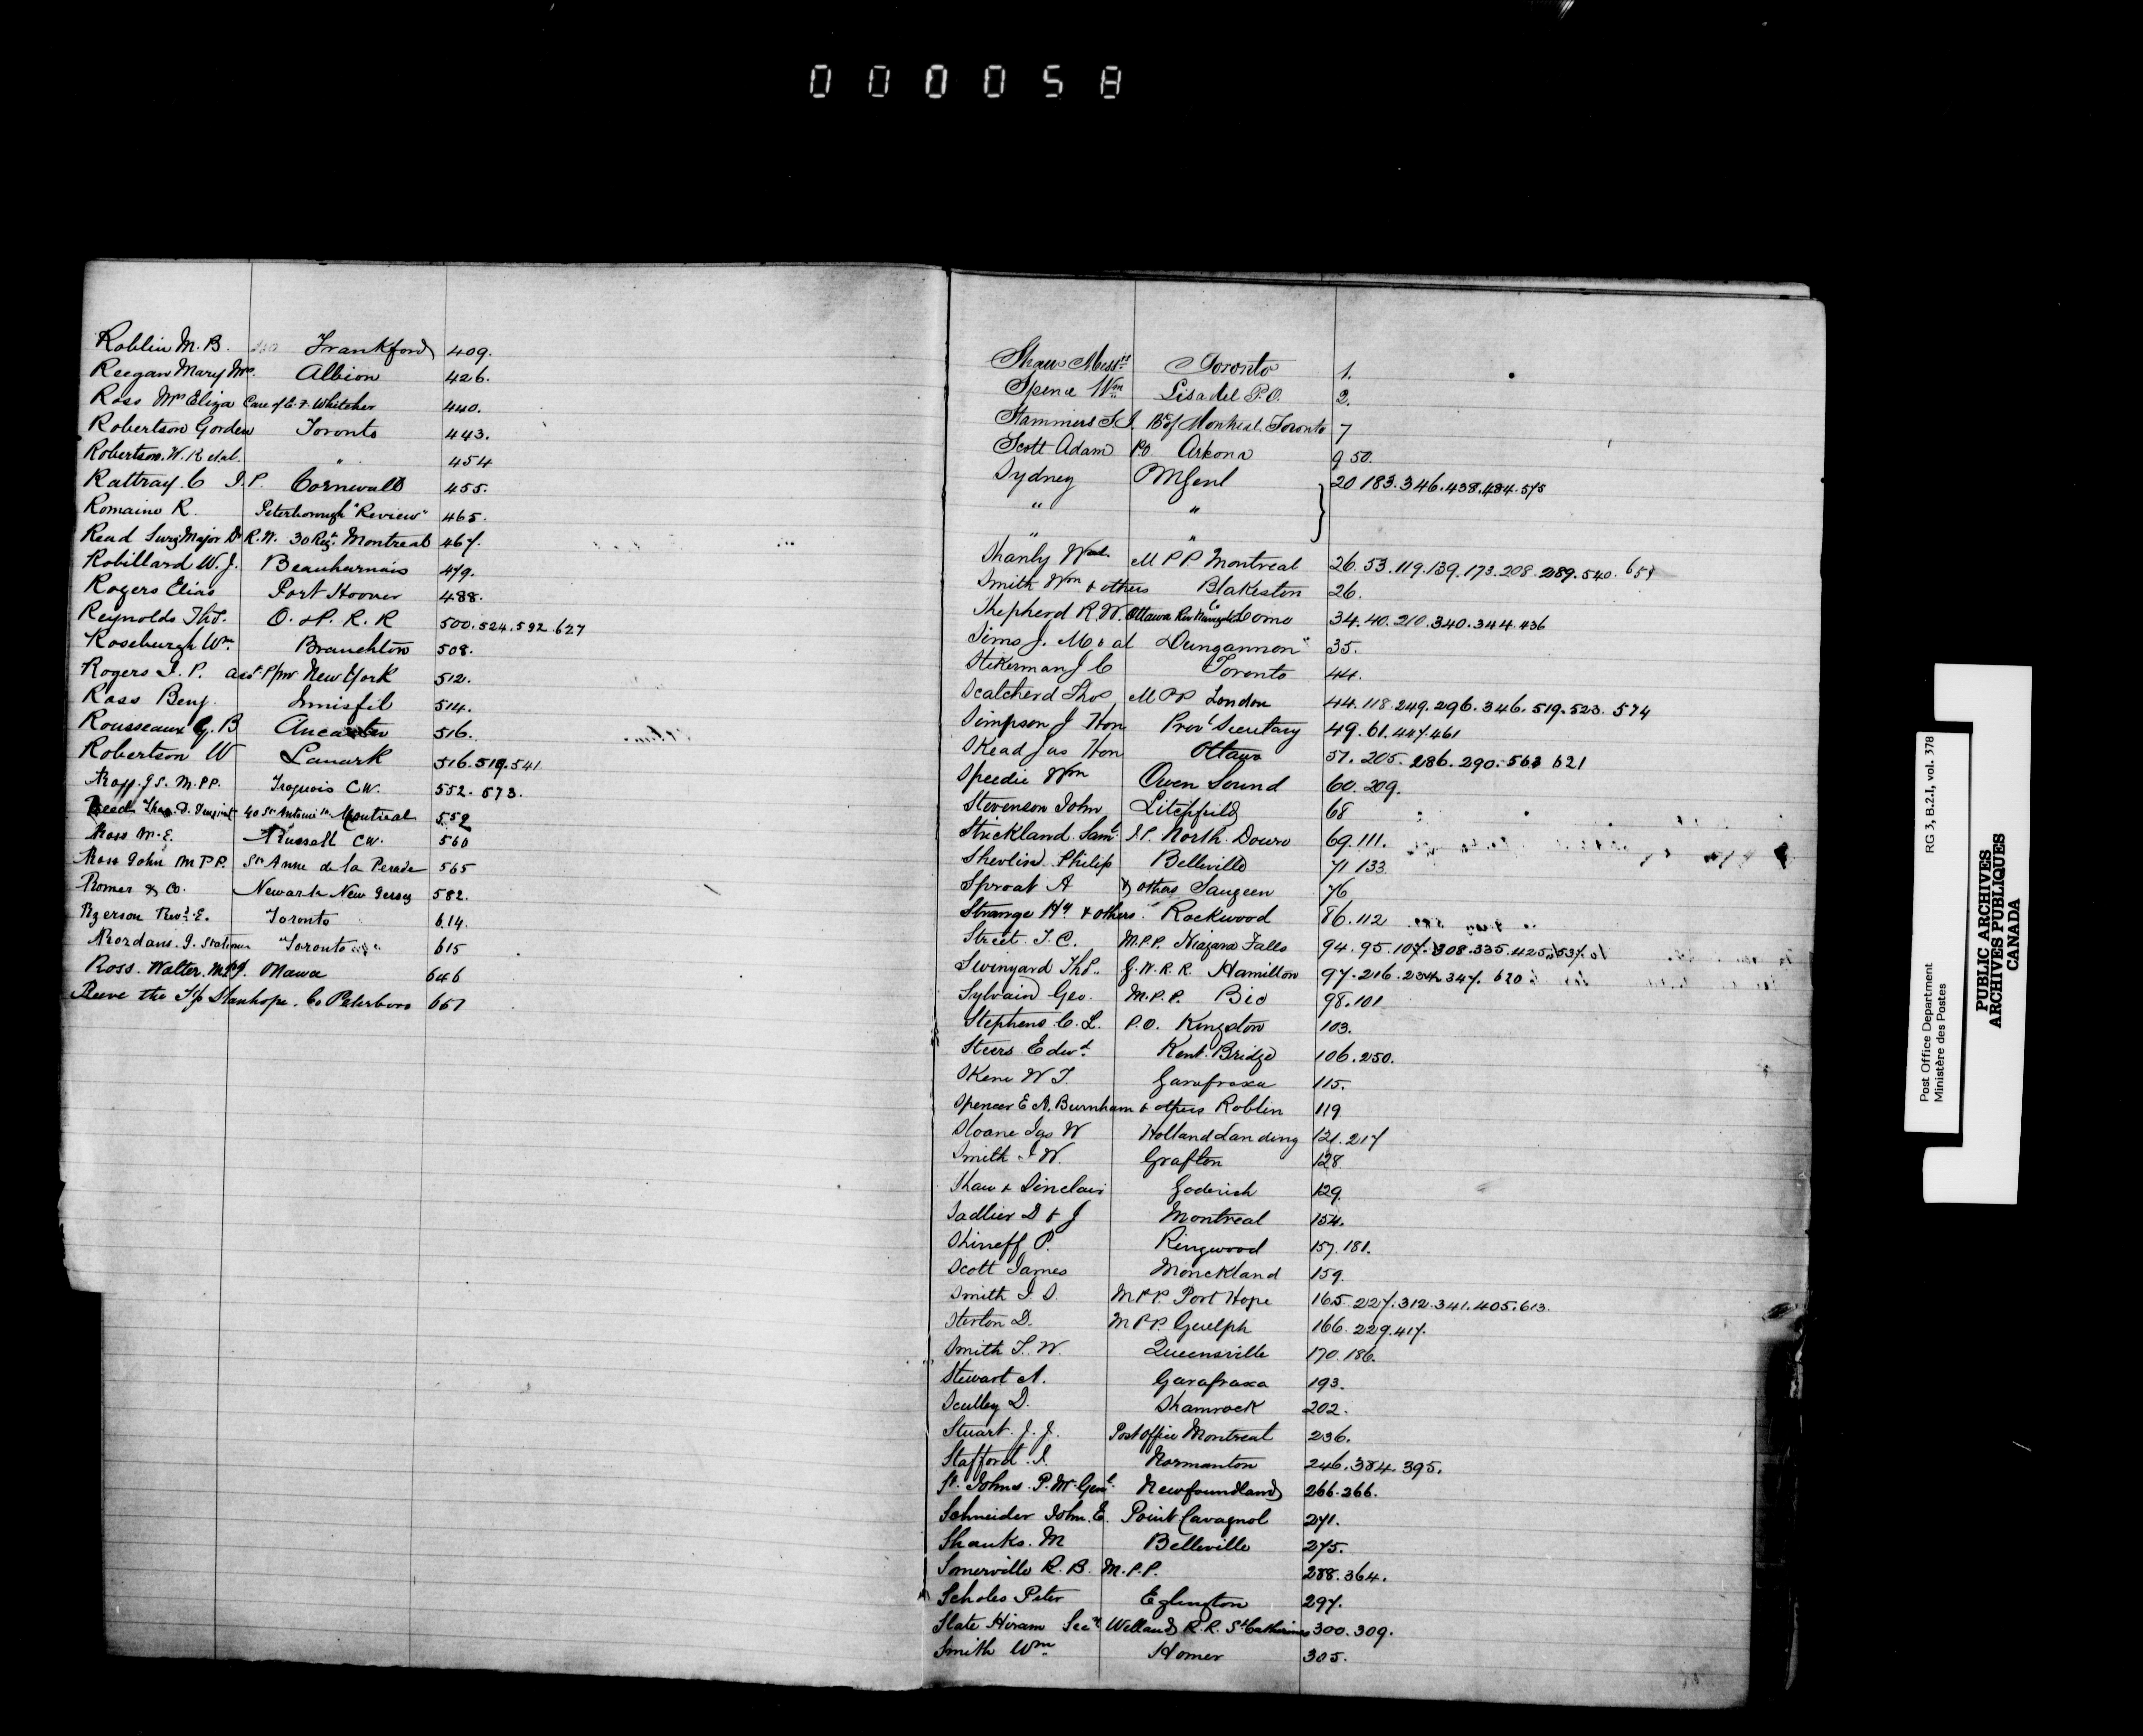 000058
Roblin M. B. Frankford 409.
Reegan Mary Mrs. Albion 426.
Ross Mrs Eliza Care of C. F. Whitcher 440.
Robertson Gorden Toronto 443.
Robertson. W. R et al. " 454
Rattray. C J. P. Cornwall 455.
Romaine R. Peterborough "Review" 465.
Read Surg Major Dr R. W. 30 Regt. Montreal 467.
Robillard W. J. Beauharnais 479.
Rogers Elias Port Hoover 488.
Reynolds Thos. O. & P. R. R 500. 524. 592. 627
Roseburgh Wm. Branchton 508.
Rogers J. P. asst P/mr New York 512.
Ross Benj. Innisfil 514.
Rousseaux G. B Ancaster 516.
Robertson W Lanark 516. 519. 541
Ross. J S. M.PP. Iroquois C.W. 552. 573.
Reed Thos. D. 40 St Antoine St Montreal 559
Ross M. E. Russell C.W. 560
Ross John M P P. St Anne de la Perade 565
Romer & Co. Newark New Jersey 582.
Ryerson Revd. E. Toronto 614.
Riordans. J. Stationer Toronto 615
Ross. Walter. M.P.P. Ottawa 646
Reeve the T/p Stanhope. Co Peterboro 667
Shaw Messrs Toronto 1.
Spence Wm Lisadel P.O. 2.
Stammers S J. Bk of Montreal. Toronto 7
Scott Adam P.O. Arkona 9 50.
Sydney P M Genl 20 183. 346. 438. 484. 575
" "
" "
Shanly Wal. M P P Montreal 26. 53. 119. 139. 173. 208. 289. 540. 659
Smith Wm & others Blakeston 26.
Shepherd R. W. Ottawa Riv Navigatn Co Como 34. 40. 210. 340. 344. 436
Sims J. M & al Dungannon 35.
Stikerman J C Toronto 44.
Scatcherd Thos M P P London 44. 118. 249. 296. 346. 519. 523. 574
Simpson J Hon Provl Secretary 49. 61. 447. 461
Skead Jas Hon Ottawa 57. 205. 286. 290. 563 621
Speedie Wm Owen Sound 60. 209.
Stevenson John Litchfield 68
Strickland Saml. J.P. North Douro 69. 111.
Shevlin. Philip Belleville 71 133
Sproat A & others Saugeen 76
Strange Hy & others. Rockwood 86. 112
Street. T. C. M.P.P. Niagara Falls 94. 95. 107. 308. 335. 425. 537.
Swinyard Thos. G. W. R. R. Hamilton 97. 216. 234. 347. 620
Sylvain Geo. M.P.P. Bic 98. 101
Stephens. C. L. P.O. Kingston 103.
Steers Edwd. Kent. Bridge 106. 250.
Skene W T. Garafraxa 115.
Spencer E A. Burnham & others Roblin 119
Sloane Jas W Holland Landing 121. 217
Smith J W. Grafton 128
Shaw & Sinclair Goderich 129
Sadlier D & J Montreal 154.
Shirreff P. Ringwood 157. 181.
Scott James Monckland 159.
Smith J. S. M P P. Port Hope 165. 227. 312. 341. 405. 613.
Stirton D. M P P. Guelph 166. 229. 417.
Smith T. W. Queensville 170. 186.
Stewart A. Garafraxa 193.
Sculley D. Shamrock 202.
Stuart. J. J. Post Office Montreal 236.
Stafford. J. Normanton 246. 384. 395.
St. Johns. P. Mr Genl. Newfoundland 266. 266.
Schneider John. E. Point Cavagnol 271.
Shanks. M Belleville 275.
Somerville R. B. M.P.P. 288. 364.
Scholes Peter Eglington 297.
Slate Hiram Secy Welland R. R. St Catherines 300. 309.
Smith Wm. Homer 305.
Post Office Department RG 3, B.2.I, vol. 378
Ministère des Postes
PUBLIC ARCHIVES
ARCHIVES PUBLIQUES
CANADA